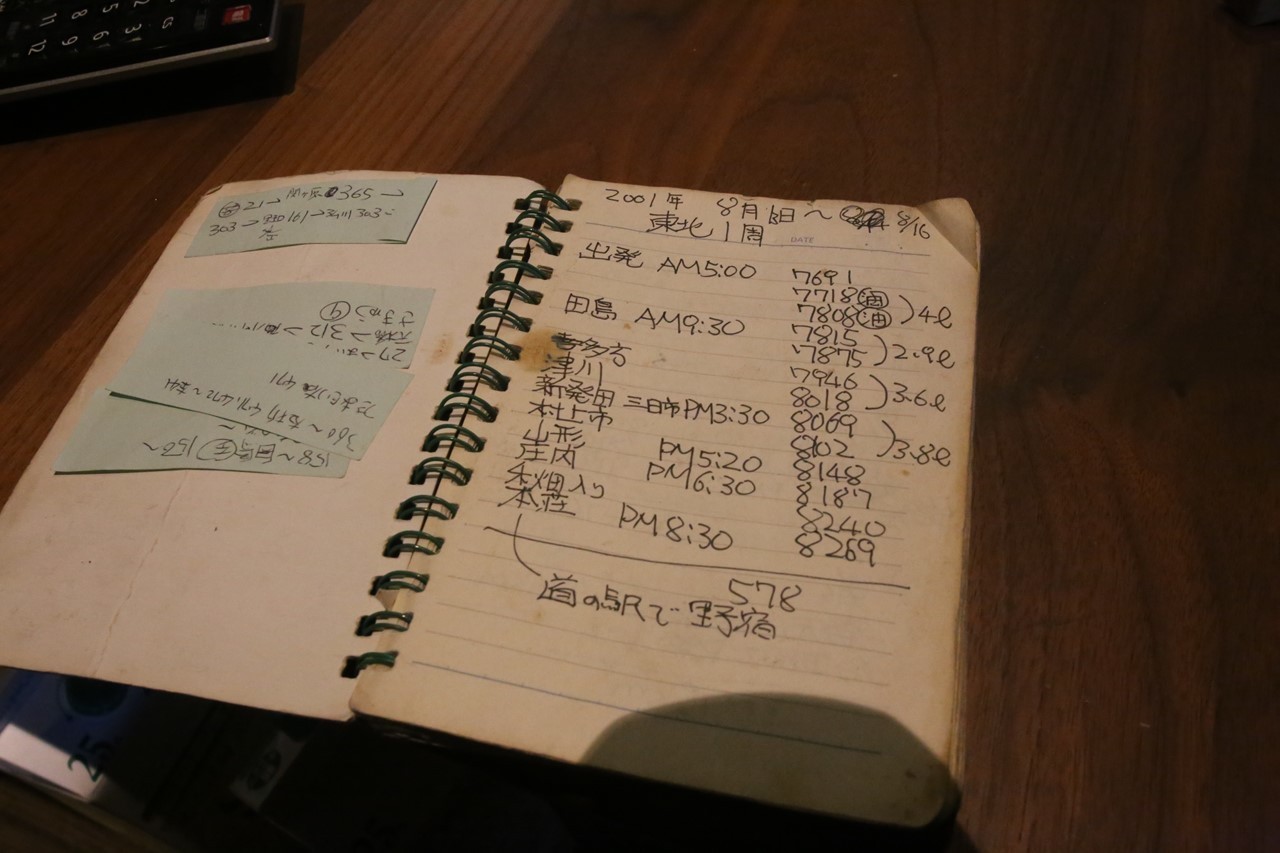 2001年 8月13日～ 8/16
東北1周
DATE
出発 AM5:00 7691
7718 油
田島 AM9:30 7808 油 )4ℓ
7815
喜多方 7875 )2.9ℓ
津川 7946
新発田 三日市PM3:30 8018 )3.6ℓ
村上市 8069
山形 PM5:20 8102 )3.8ℓ
庄内 PM6:30 8148
秋田入り 8187
本荘 PM8:30 8240
8269
578
道の駅で野宿
21→関ヶ原 365→
303→
312→
27→
158～ 150～